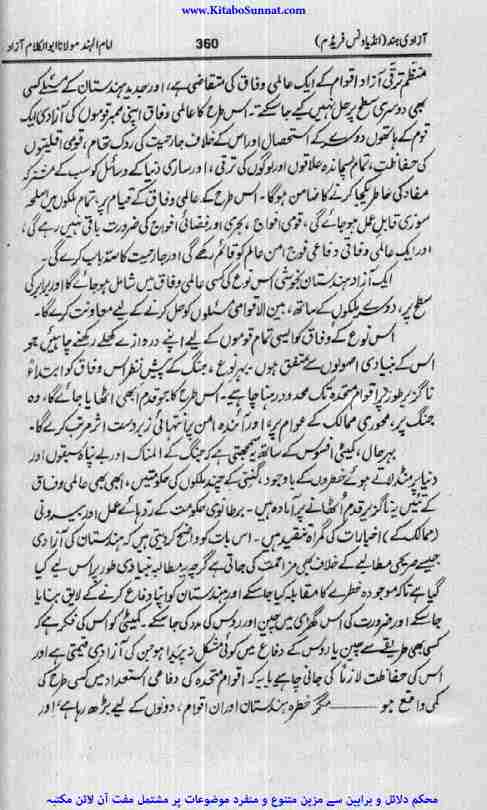 www.KitaboSunnat.com
آزادی ہند (انڈیا ونس فریڈم) 360 امام الہند مولانا ابوالکلام آزاد
منظم ترقی آزاد اقوام کے ایک عالمی وفاق کی متقاضی ہے، اور جدید ہندستان کے مسئلے کسی
بھی دوسری سطح پر حل نہیں کیے جا سکتے۔ اس طرح کا عالمی وفاق اپنی ممبر قوموں کی آزادی، ایک
قوم کے ہاتھوں دوسرے کے استحصال اور اس کے خلاف جارحیت کی روک تھام، قومی اقلیتوں
کی حفاظت، تمام پسماندہ علاقوں اور لوگوں کی ترقی، اور ساری دنیا کے وسائل کو سب کے مشترکہ
مفاد کی خاطر یکجا کرنے کا ضامن ہوگا۔ اس طرح کے عالمی وفاق کے قیام پر، تمام ملکوں میں اسلحہ
سوزی قابل عمل ہو جائے گی، قومی افواج، بحری اور فضائی افواج کی ضرورت باقی نہیں رہے گی،
اور ایک عالمی وفاقی دفاعی فوج امن عالم کو قائم رکھے گی اور جارحیت کا سدباب کرے گی۔
ایک آزاد ہندستان بخوشی اس نوع کی کسی عالمی وفاق میں شامل ہو جائے گا اور برابر کی
سطح پر، دوسرے ملکوں کے ساتھ، بین الاقوامی مسئلوں کو حل کرنے کے لیے معاونت کرے گا۔
اس نوع کے وفاق کو ایسی تمام قوموں کے لیے اپنے دروازے کھلے رکھنے چاہئیں جو
اس کے بنیادی اصولوں سے متفق ہوں۔ بہر نوع، جنگ کے پیش نظر اس وفاق کو ابتداءً
ناگزیر طور پر اقوام متحدہ تک محدود رہنا چاہیے۔ اس طرح کا جو قدم ابھی اٹھایا جائے گا، وہ
جنگ پر، محوری ممالک کے عوام پر، اور آئندہ امن پر انتہائی زبردست اثر مرتب کرے گا۔
بہر حال، کمیٹی افسوس کے ساتھ یہ سمجھتی ہے کہ جنگ کے المناک اور بے پناہ سبقوں اور
دنیا پر منڈلاتے ہوئے خطروں کے باوجود، گنتی کے چند ملکوں کی حکومتیں، ابھی بھی عالمی وفاق
کے تئیں یہ ناگزیر قدم اٹھانے پر آمادہ ہیں۔ برطانوی حکومت کے ردہائے عمل اور بیرونی
(ممالک کے) اخبارات کی گمراہ تنقیدیں۔ اس بات کو واضح کر دیتی ہیں کہ ہندستان کی آزادی
جیسے صریحی مطالبے کے خلاف بھی مزاحمت کی جاتی ہے گرچہ یہ مطالبہ بنیادی طور پر اس لیے کیا
گیا ہے تاکہ موجودہ خطرے کا مقابلہ کیا جا سکے اور ہندستان کو اپنا دفاع کرنے کے لایق بنایا
جا سکے اور ضرورت کی اس گھڑی میں چین اور روس کی مدد کی جا سکے۔ کمیٹی کو اس کی فکر ہے کہ
کسی بھی طریقے سے چین یا روس کے دفاع میں کوئی مشکل نہ پیدا ہو جن کی آزادی قیمتی ہے اور
اس کی حفاظت لازماً کی جانی چاہیے یا یہ کہ اقوام متحدہ کی دفاعی استعداد میں کسی طرح کی
کمی واقع ہو ——— مگر خطرہ ہندستان اور ان اقوام، دونوں کے لیے بڑھ رہا ہے، اور
محکم دلائل و براہین سے مزین متنوع و منفرد موضوعات پر مشتمل مفت آن لائن مکتبہ